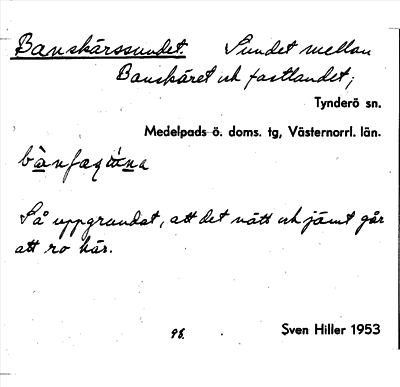 Banskärssundet. Sundet mellan
Banskäret och fastlandet;
Tynderö sn.
Medelpads ö. doms. tg, Västernorrl. län.
Så uppgrundat, att det nätt och jämt går
att ro här.
98. Sven Hiller 1953